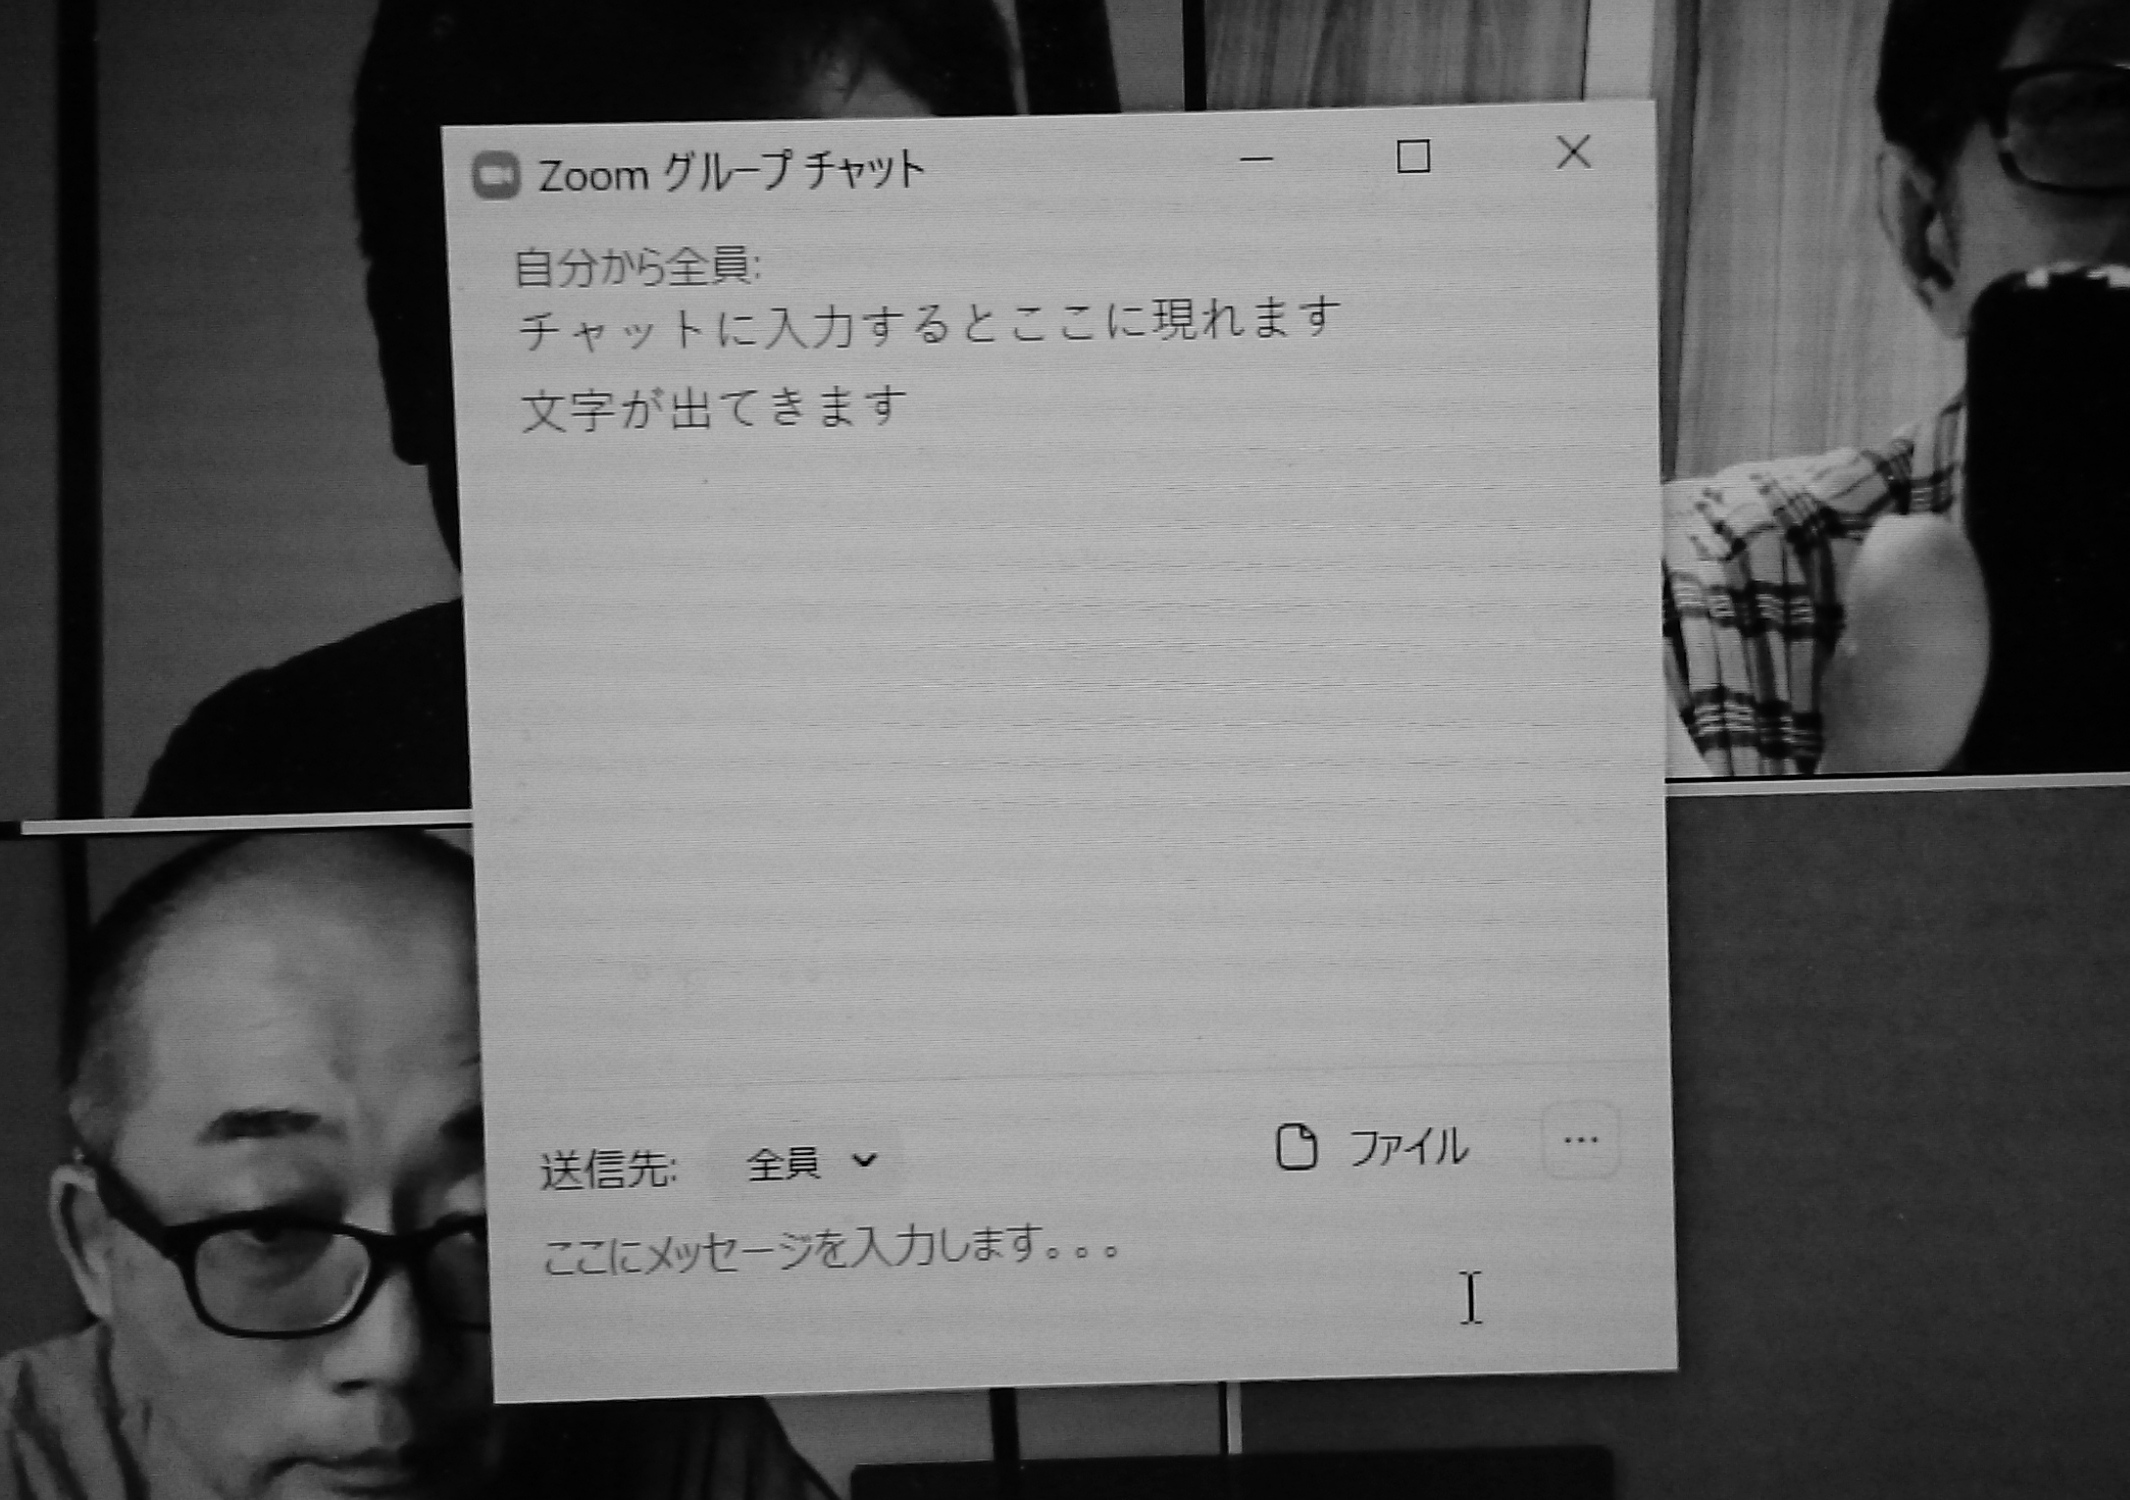 Zoom グループ チャット
自分から全員:
チャットに入力するとここに現れます
文字が出てきます
送信先: 全員 ファイル ...
ここにメッセージを入力します。。。